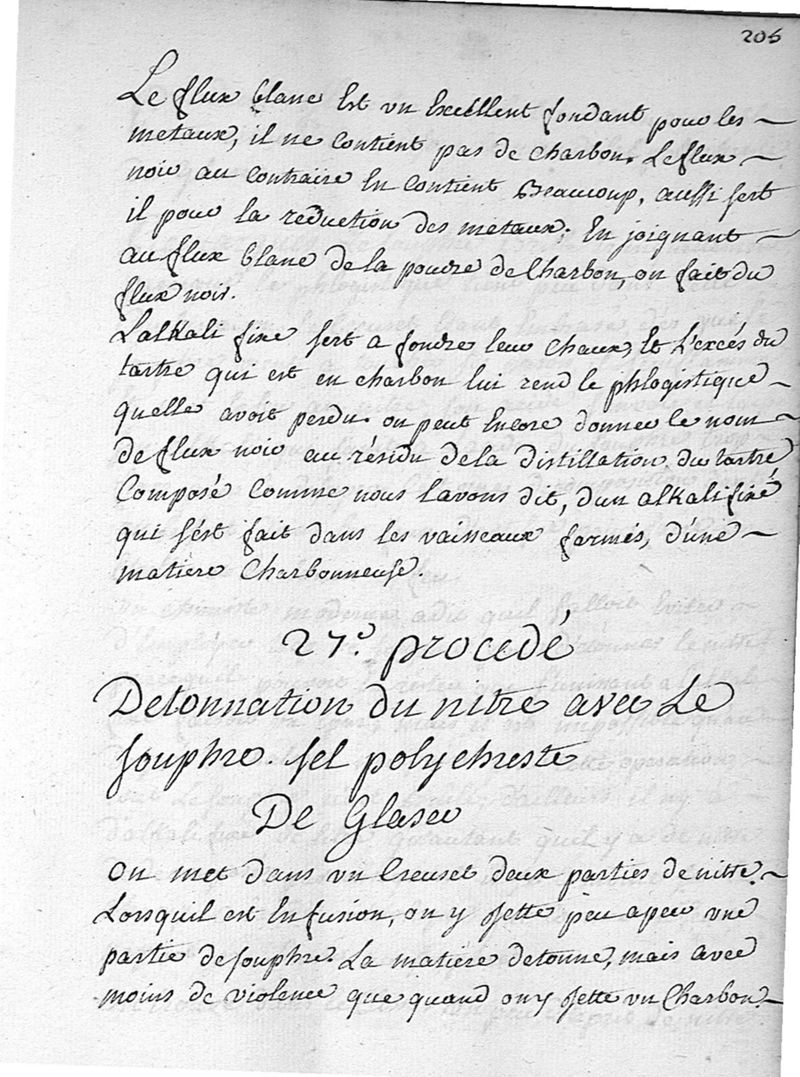 205
Le flux blanc Est un Excellent fondant pour les
metaux, il ne Contient pas de charbon. Le flux
noir au Contraire En Contient Beaucoup, aussi sert
il pour la reduction des metaux. En joignant
au flux blanc de la poudre de Charbon, on fait du
flux noir.
Lalkali fixe sert a fondre leur Chaux, Et L'excés du
tartre qui est en charbon lui rend le phlogistique
quelle avoit perdu. on peut Encore donner le nom
de flux noir au résidu de la distillation du tartre
Composé Comme nous lavons dit, dun alkali fixé
qui s'ést fait dans les vaisseaux fermés, d'une
matière Charbonneuse.
27.e procedé
Detonnation du nitre avec Le
souphre. sel polychreste
De Glaser
on met dans un Creuset deux parties de nitre.
Lorsquil est En fusion, on y jette peu apeu une
partie de souphre. La matière detonne, mais avec
moins de violence que quand on y jette un Charbon.